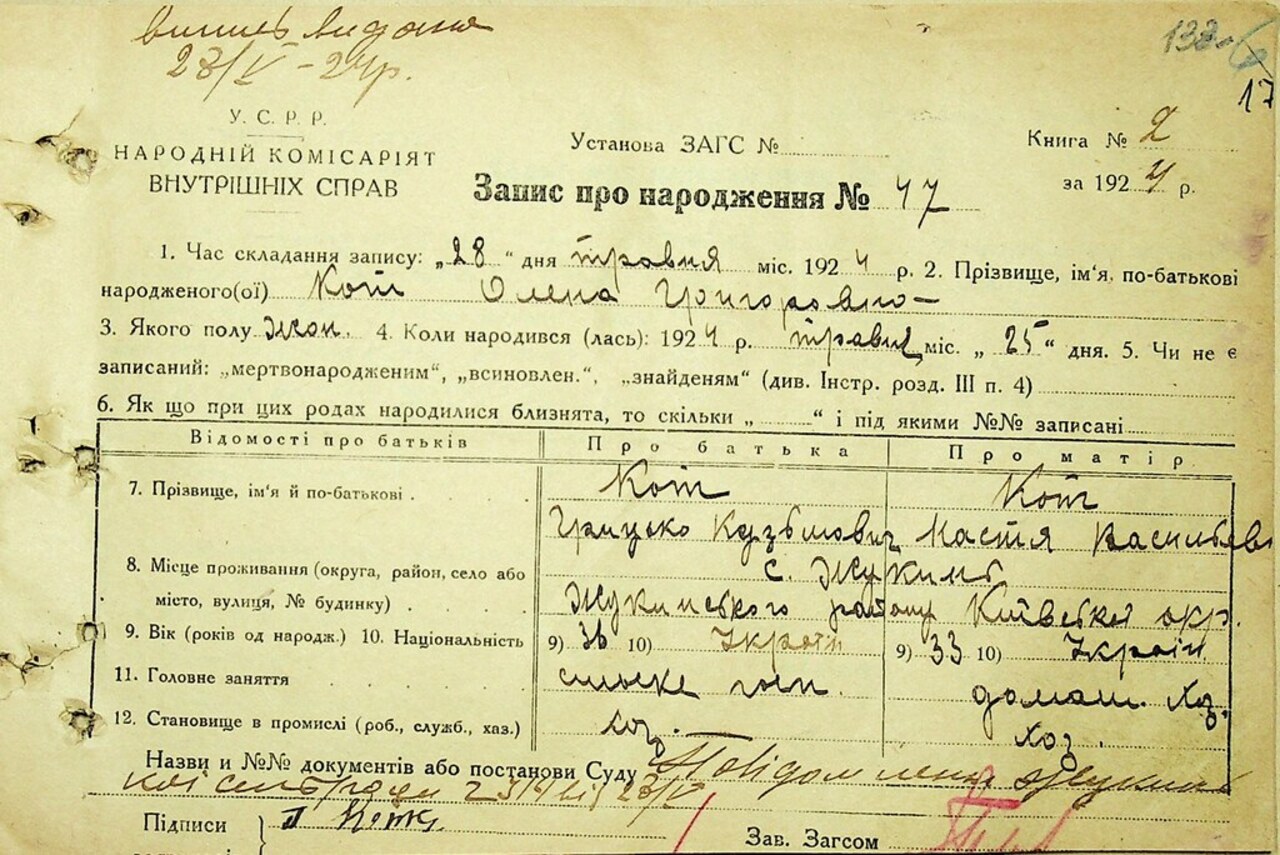 випись видана
23/V – 24р.
17
У. С. Р. Р.
НАРОДНІЙ КОМІСАРІЯТ
ВНУТРІШНІХ СПРАВ
Установа ЗАГС №
Книга № 2
за 1924 р.
Запис про народження № 47
1. Час складання запису: „28“ дня травня міс. 1924 р. 2. Прізвище, ім'я, по-батькові
народженого(ої) Кот Олена Григоровно
3. Якого полу жон. 4. Коли народився (лась): 1924 р. травня міс. „25“ дня. 5. Чи не є
записаний: „мертвонародженим“, „всиновлен.“, „знайденям“ (див. Інстр. розд. III п. 4)
6. Як що при цих родах народилися близнята, то скільки „ “ і під якими №№ записані
Відомості про батьків Про батька Про матір
7. Прізвище, ім'я й по-батькові Кот Кот
Грицько Кузьмович Настя Васильєв
8. Місце проживання (округа, район, село або с. Жукинь
місто, вулиця, № будинку) Жукинського району Київської окр.
9. Вік (років од народж.) 10. Національність 9) 36 10) Україн 9) 33 10) Україн
11. Головне заняття сільске госп. домаш. хоз.
12. Становище в промислі (роб., служб., хаз.) хоз. хоз.
Назви и №№ документів або постанови Суду Повідомлення Жукинь
кої сельради 23/V
Підписи
Зав. Загсом